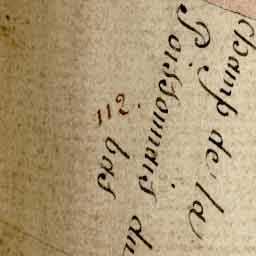 champ de la
Poissonnais du
bas
112.